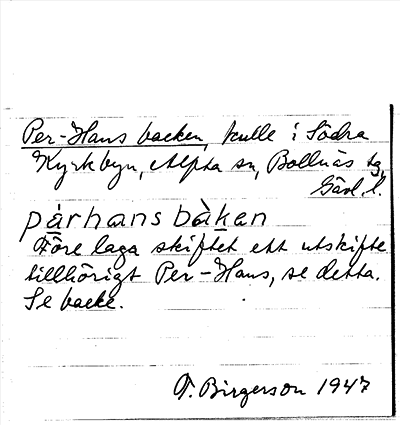 Per-Hans backen, kulle i Södra
Kyrkbyn, Alfta sn, Bollnäs tg,
Gävl. l.
pàrhansbàkan
Före laga skiftet ett utskifte
tillhörigt Per-Hans, se detta.
Se backe.
F. Birgerson 1947